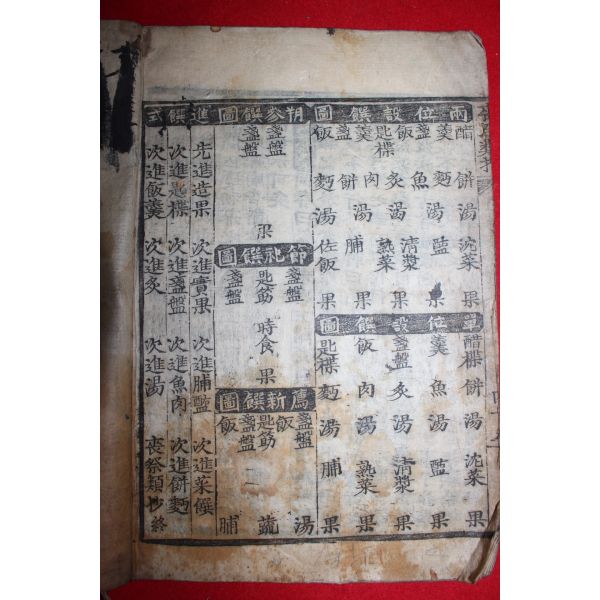 兩位設饌圖
醋 羹 盞 飯 匙楪 羹 盞 飯
餠 麵 魚 炙 肉 餠 麵
湯 湯 湯 湯 湯 湯
沈菜 醢 清漿 熟菜 脯 佐飯
果 果 果 果 果 果
單位設饌圖
醋楪 羹 盞盤 飯 匙楪
餠 魚 炙 肉 麵
湯 湯 湯 湯 湯
沈菜 醢 清漿 熟菜 脯
果 果 果 果 果
朔參饌圖
盞盤 盞盤
果
節祀饌圖
盞盤 匙筯 盞盤
時食
果
薦新饌圖
盞盤 飯 匙筯 盞盤 飯
湯 蔬 脯
進饌式
先進造果 次進實果 次進脯醢 次進菜饌
次進匙楪 次進盞盤 次進魚肉 次進餠麵
次進飯羹 次進炙 次進湯 喪祭類抄終